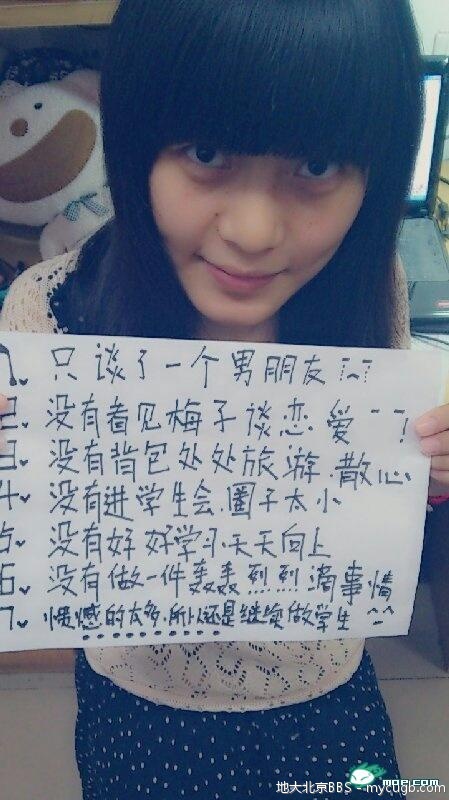 1、只谈了一个男朋友
2、没有看见梅子谈恋爱
3、没有背包处处旅游、散心
4、没有进学生会、圈子太小
5、没有好好学习、天天向上
6、没有做一件轰轰烈烈滴事情
7、遗憾的太多、所以还是继续做学生^^
地大北京BBS - mycugb.com
MOP.COM